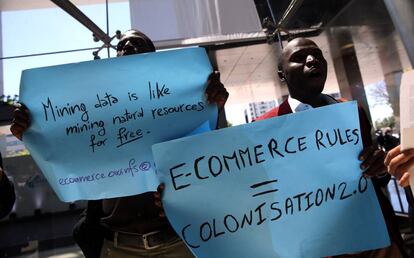 Mining data is like
mining natural resources
for free.
E-COMMERCE RULES
=
COLONISATION 2.0